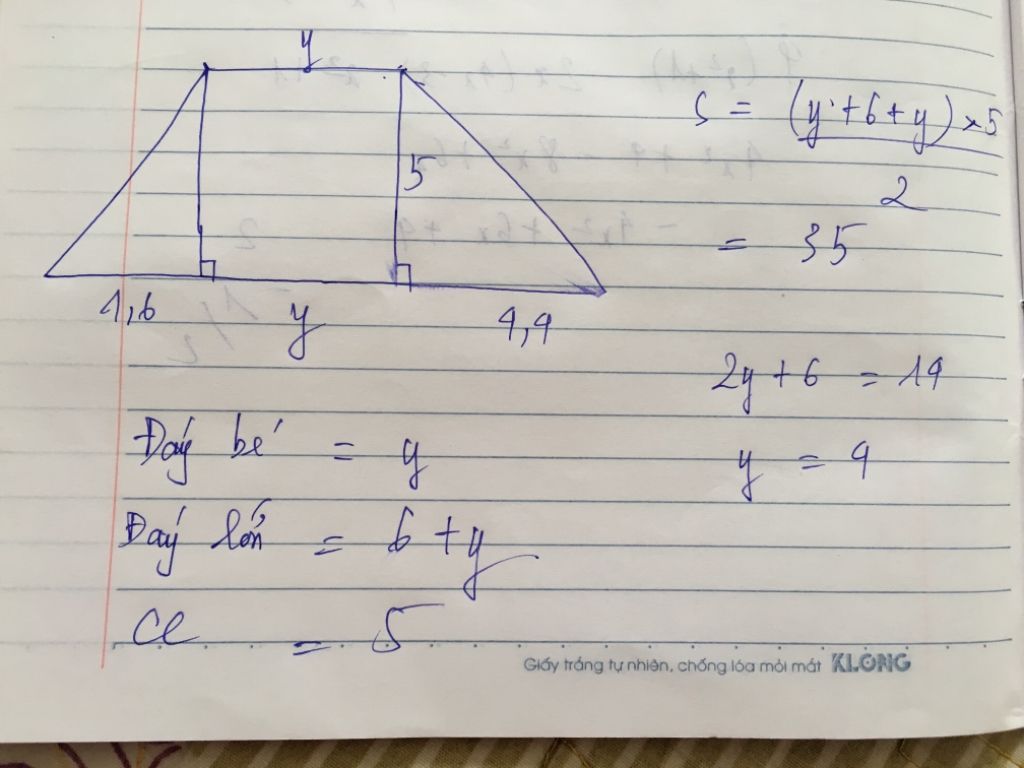 y
5
1,6 y 4,4
S = (y + 6 + y) × 5
2
= 35
2y + 6 = 14
y = 4
Đáy bé = y
Đáy lớn = 6 + y
CC = 5
Giấy trắng tự nhiên, chống lóa mỏi mắt KLONG